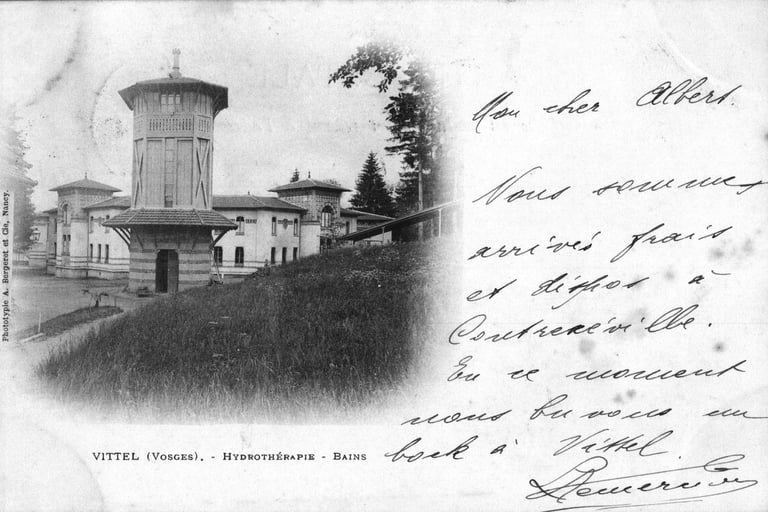 Mon cher Albert.
Nous sommes
arrivés frais
et dispos à
Contrexéville.
En ce moment
nous buvons un
bock à Vittel.
Phototypie A. Bergeret et Cie, Nancy.
VITTEL (VOSGES). - HYDROTHÉRAPIE - BAINS